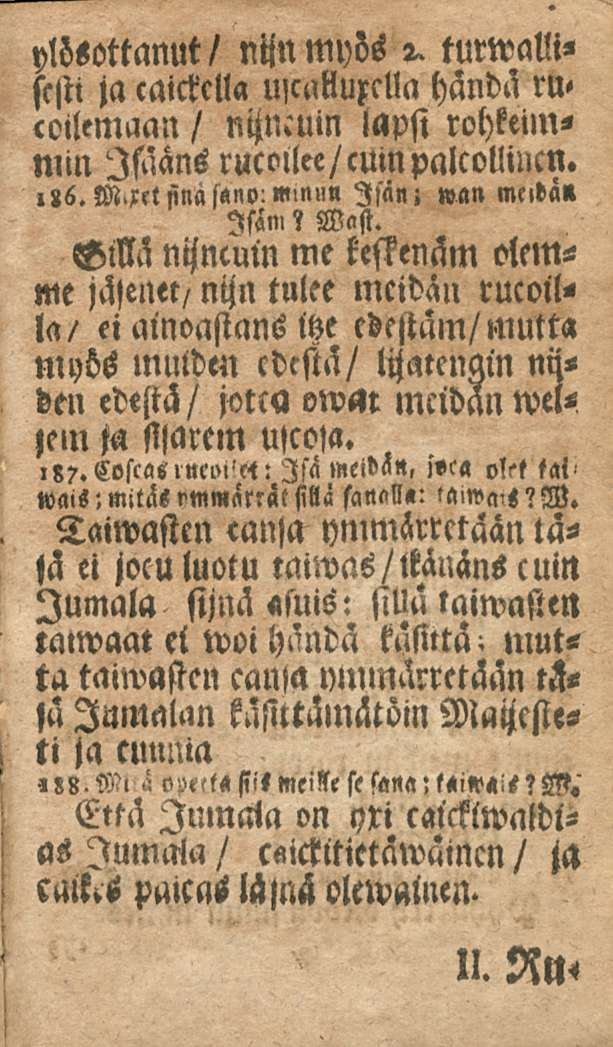 ylösottanut / nijn myös 2. turwalli⸗
sesti ja caickella uscalluxella händä ru⸗
coilemaan / nijncuin lapsi rohkeim⸗
min Isääns rucoilee / cuin palcollinen.
186. Mixet sinä sano: minun Isän; wan meidän
Isäm? Wast.
Sillä nijncuin me keskenäm olem⸗
me jäsenet, nijn tulee meidän rucoil⸗
la / ei ainoastans itze edestäm / mutta
myös muiden edestä / lijatengin nij⸗
den edestä / jotca owat meidän wel⸗
jem ja sisarem uscosa.
187. Coscas rucoilet: Isä meidän, joca olet tai⸗
wais; mitäs ymmärrät sillä sanalla: taiwais? W.
Taiwasten cansa ymmärretään tä⸗
sä ei jocu luotu taiwas / ikänäns cuin
Jumala sijnä asuis: sillä taiwasten
taiwaat ei woi händä käsittä; mut⸗
ta taiwasten cansa ymmärretään tä⸗
sä Jumalan käsittämätöin Maijeste⸗
ti ja cunnia
188. Mitä opetta siis meille se sana; taiwais? W.
Että Jumala on yxi caickiwaldi⸗
as Jumala / caickitietäwäinen / ja
caikes paicas läsnä olewainen.
II. Ru⸗